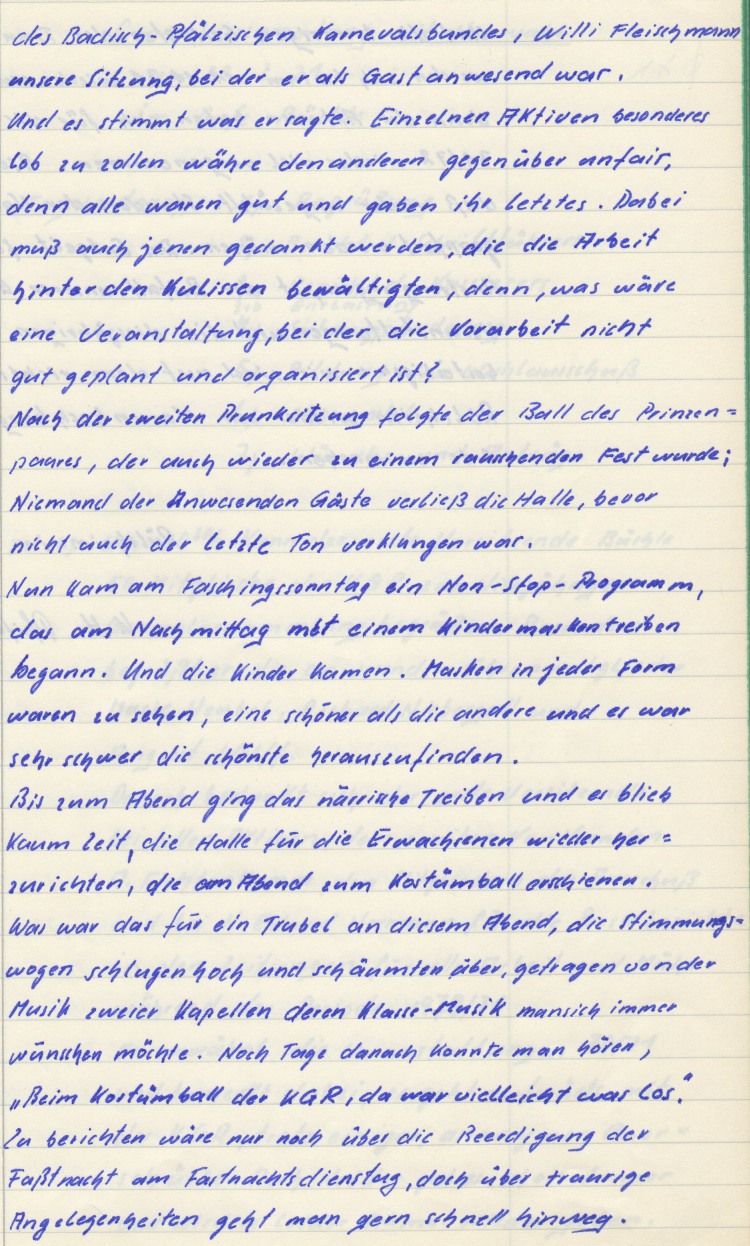 des Badisch-Pfälzischen Karnevalsbundes, Willi Fleischmann
unsere Sitzung, bei der er als Gast anwesend war.
Und es stimmt was er sagte. Einzelnen Aktiven besonderes
Lob zu zollen währe den anderen gegenüber unfair,
denn alle waren gut und gaben ihr letztes. Dabei
muß auch jenen gedankt werden, die die Arbeit
hinter den Kulissen bewältigten, denn, was wäre
eine Veranstaltung, bei der die Vorarbeit nicht
gut geplant und organisiert ist?
Nach der zweiten Prunksitzung folgte der Ball des Prinzen=
paares, der auch wieder zu einem rauschenden Fest wurde;
Niemand der Anwesenden Gäste verließ die Halle, bevor
nicht auch der letzte Ton verklungen war.
Nun kam am Faschingssonntag ein Non-Stop-Programm,
das am Nachmittag mit einem Kindermaskentreiben
begann. Und die Kinder kamen. Masken in jeder Form
waren zu sehen, eine schöner als die andere und es war
sehr schwer die schönste herauszufinden.
Bis zum Abend ging das närrische Treiben und es blieb
kaum Zeit, die Halle für die Erwachsenen wieder her=
zurichten, die am Abend zum Kostümball erschienen.
Was war das für ein Trubel an diesem Abend, die Stimmungs=
wogen schlugen hoch und schäumten über, getragen von der
Musik zweier Kapellen deren Klasse-Musik man sich immer
wünschen möchte. Noch Tage danach konnte man hören,
„Beim Kostümball der KGR, da war vielleicht was los."
Zu berichten wäre nur noch über die Beerdigung der
Faßtnacht am Fastnachtsdienstag, doch über traurige
Angelegenheiten geht man gern schnell hinweg.